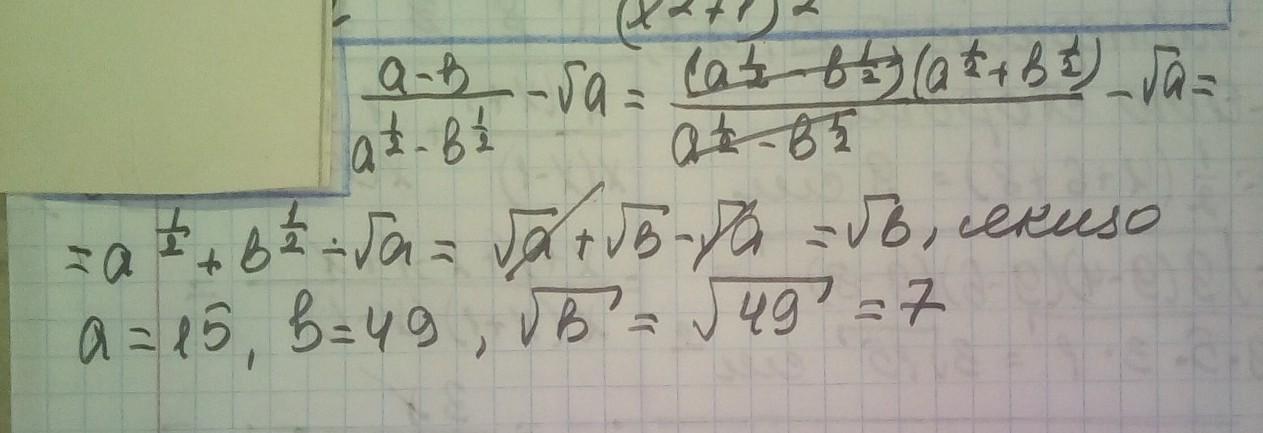 (x²+1)²
(a-b)/(a^½-b^½) - √a = ((a^½-b^½)(a^½+b^½))/(a^½-b^½) - √a =
= a^½ + b^½ - √a = √a + √b - √a = √b, якщо
a = 15, b = 49, √b = √49 = 7